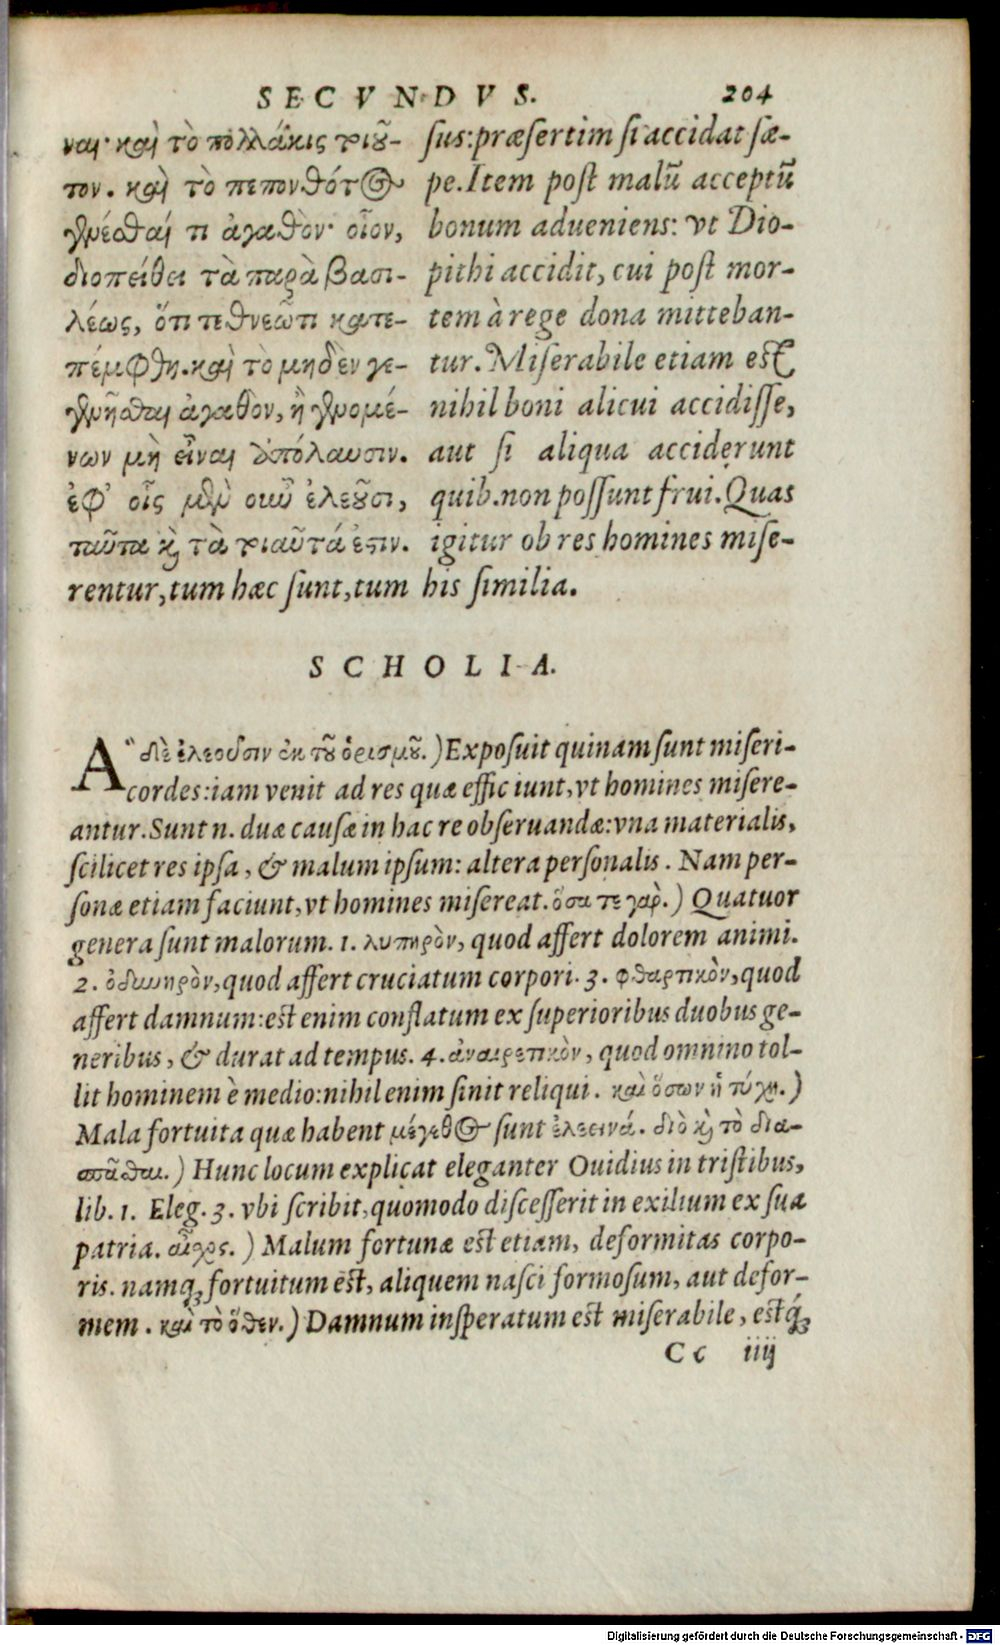 SECVNDVS. 204
ναι· καὶ τὸ πολλάκις τοιοῦ-
τον. καὶ τὸ πεπονθότος
γενέσθαι τι ἀγαθὸν· οἷον,
διοπείθει τὰ παρὰ βασι-
λέως, ὅτι τεθνεῶτι κατε-
πέμφθη. καὶ τὸ μηδὲν γε-
γενῆσθαι ἀγαθὸν, ἢ γενομέ-
νων μὴ εἶναι ἀπόλαυσιν.
ἐφ' οἷς μὲν οὖν ἐλεοῦσι,
ταῦτα καὶ τὰ τοιαῦτά ἐστιν.
sus: præsertim si accidat sæ-
pe. Item post malũ acceptũ
bonum adueniens: vt Dio-
pithi accidit, cui post mor-
tem à rege dona mitteban-
tur. Miserabile etiam est
nihil boni alicui accidisse,
aut si aliqua acciderunt
quib. non possunt frui. Quas
igitur ob res homines mise-
rentur, tum hæc sunt, tum his similia.
SCHOLIA.
Ἃ δὲ ἐλεοῦσιν ἐκ τοῦ ὁρισμοῦ.) Exposuit quinam sunt miseri-
cordes: iam venit ad res quæ efficiunt, vt homines misere-
antur. Sunt n. duæ causæ in hac re obseruandæ: vna materialis,
scilicet res ipsa, & malum ipsum: altera personalis. Nam per-
sonæ etiam faciunt, vt homines misereat. ὅσα τε γαρ.) Quatuor
genera sunt malorum. 1. λυπηρὸν, quod affert dolorem animi.
2. ὀδυνηρὸν, quod affert cruciatum corpori. 3. φθαρτικὸν, quod
affert damnum: est enim conflatum ex superioribus duobus ge-
neribus, & durat ad tempus. 4. ἀναιρετικὸν, quod omnino tol-
lit hominem è medio: nihil enim sinit reliqui. καὶ ὅσων ἡ τύχη.)
Mala fortuita quæ habent μέγεθος sunt ἐλεεινά. διὸ καὶ τὸ δια-
σπᾶσθαι.) Hunc locum explicat eleganter Ouidius in tristibus,
lib. 1. Eleg. 3. vbi scribit, quomodo discesserit in exilium ex sua
patria. αἶσχος.) Malum fortunæ est etiam, deformitas corpo-
ris. namq; fortuitum est, aliquem nasci formosum, aut defor-
mem. καὶ τὸ ὅθεν.) Damnum insperatum est miserabile, estq́;
Cc iiij
Digitalisierung gefördert durch die Deutsche Forschungsgemeinschaft - DFG